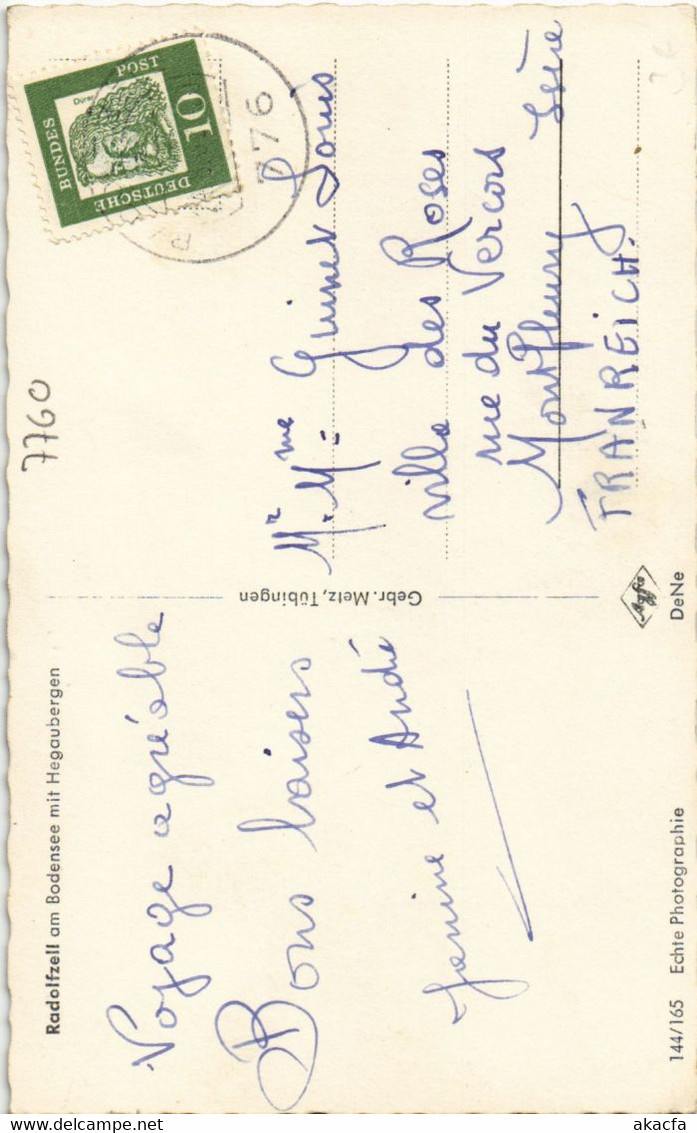 Radolfzell am Bodensee mit Hegaubergen
Voyage agréable
Bons baisers
Janine et André
144/165 Echte Photographie
Gebr. Metz, Tübingen
Agfa
DeNe
7760
DEUTSCHE
BUNDES
POST
10
Dürer
776
Mr. Mme Guinet Louis
villa des Roses
rue du Vercors
Montfleury Isère
FRANREICH.
www.delcampe.net
akacfa